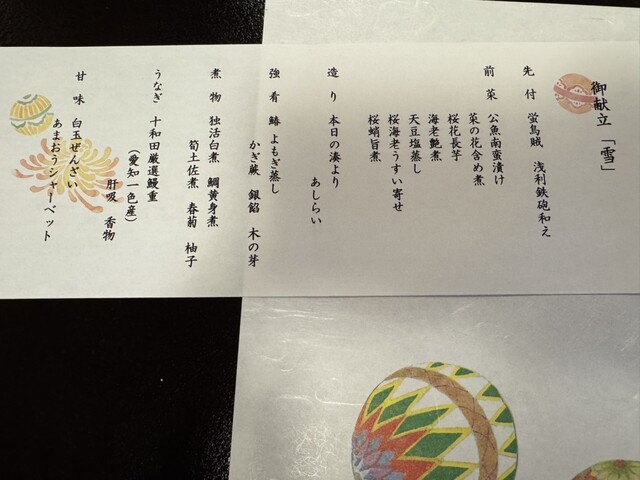 御献立 「雪」
先付 蛍烏賊 浅利鉄砲和え
前菜 公魚南蛮漬け
菜の花含め煮
桜花長芋
海老艶煮
天豆塩蒸し
桜海老うすい寄せ
桜蛸旨煮
造り 本日の湊より
あしらい
強肴 鰆よもぎ蒸し
かぎ蕨 銀餡 木の芽
煮物 独活白煮 鯛黄身煮
筍土佐煮 春菊 柚子
うなぎ 十和田厳選鰻重
(愛知一色産)
肝吸 香物
甘味 白玉ぜんざい
あまおうシャーベット